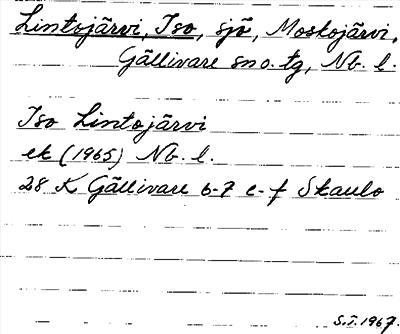 Lintojärvi, Iso, sjö, Moskojärvi,
Gällivare sn o. tg, Nb. l.
Iso Lintojärvi
ek (1965) Nb. l.
28 K Gällivare 6-7 e-f Skaulo
S.I. 1967.